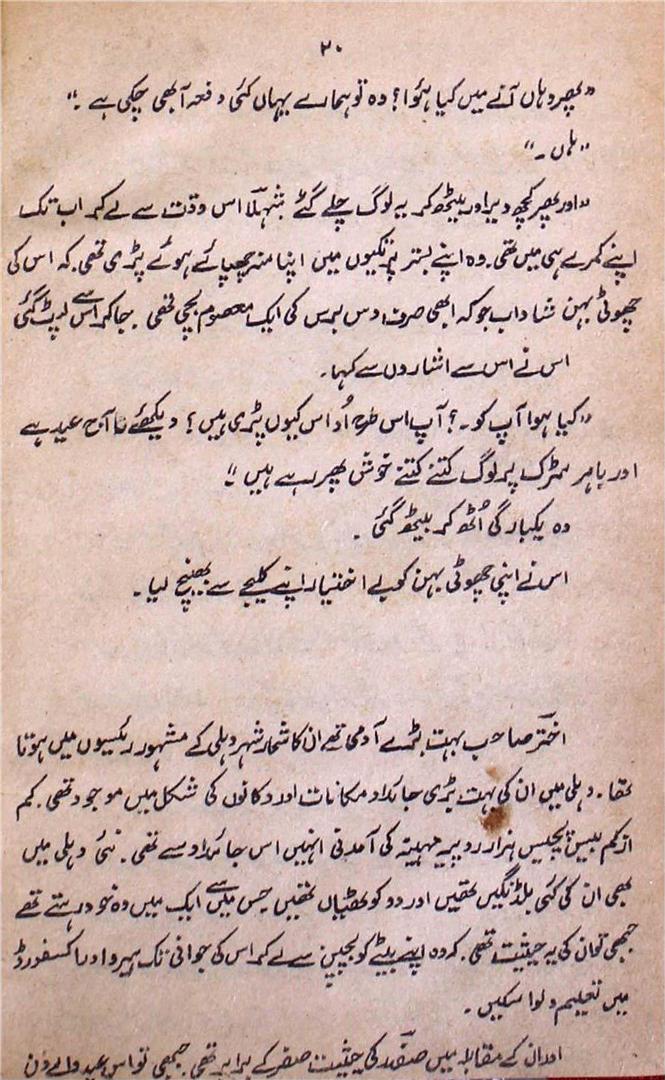 ۲۰
"پھر وہاں آنے میں کیا ہؤا؟ وہ تو ہمارے یہاں کئی دفعہ آ بھی چکی ہے۔"
"ہاں۔"
"اور پھر کچھ دیر اور بیٹھ کر یہ لوگ چلے گئے شہلاؔ اس وقت سے لے کر اب تک
اپنے کمرے ہی میں تھی۔ وہ اپنے بستر پر تکیوں میں اپنا منہ چھپائے ہوئے پڑی تھی۔ کہ اس کی
چھوٹی بہن شاداب جو کہ ابھی صرف دس برس کی ایک معصوم بچی تھی۔ جا کر اس سے لپٹ گئی
اس نے اس سے اشاروں سے کہا۔
"کیا ہوا آپ کو۔؟ آپ اس طرح اُداس کیوں پڑی ہیں؟ دیکھئے نا آج عید ہے
اور باہر سڑک پر لوگ کتنے کتنے خوش پھر رہے ہیں"
وہ یکبارگی اُٹھ کر بیٹھ گئی۔
اس نے اپنی چھوٹی بہن کو بے اختیار اپنے کلیجے سے بھینچ لیا۔
اخترؔ صاحب بہت بڑے آدمی تھے ان کا شمار شہر دہلی کے مشہور رئیسوں میں ہوتا
تھا۔ دہلی میں ان کی بہت بڑی جائداد مکانات اور دکانوں کی شکل میں موجود تھی۔ کم
از کم بیس پچیس ہزار روپیہ مہینہ کی آمدنی انہیں اس جائداد سے تھی۔ نئی دہلی میں
بھی ان کی کئی بلڈنگیں تھیں اور دو کوٹھیاں تھیں جس میں سے ایک میں وہ خود رہتے تھے
جبھی تو ان کی یہ حیثیت تھی۔ کہ وہ اپنے بیٹے کو بچپن سے لے کر اس کی جوانی تک ہیرو اور آکسفورڈ
میں تعلیم دلوا سکیں۔
اور ان کے مقابلہ میں صفدرؔ کی حیثیت صفر کے برابر تھی جبھی تو اس عید والے دن